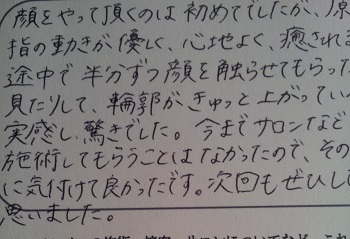 顔をやって頂くのは初めてでしたが、
指の動きが優しく、心地よく、癒される
途中で半分ずつ顔を触らせてもらった
見たりして、輪郭がきゅっと上がってい
実感し、驚きでした。今までサロンなど
施術してもらうことはなかったので、その
に気付けて良かったです。次回もぜひし
思いました。